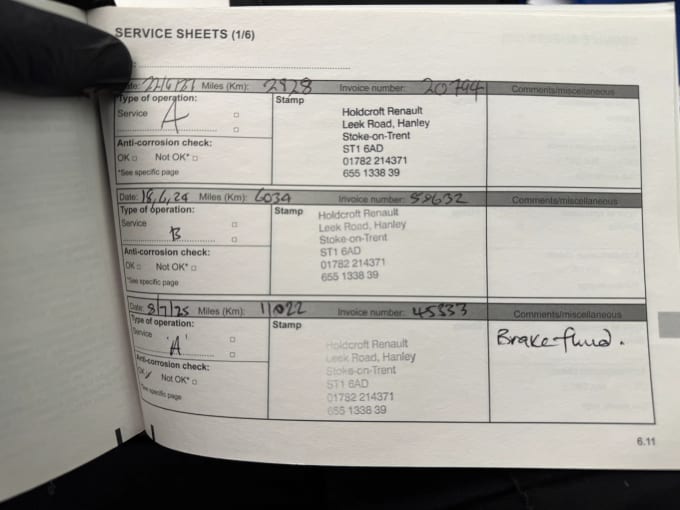 SERVICE SHEETS (1/6)
Miles (Km): 2828 Invoice number: 20794 Comments/miscellaneous
Type of operation: Stamp
Service A
Anti-corrosion check:
OK Not OK*
*See specific page
Holdcroft Renault
Leek Road, Hanley
Stoke-on-Trent
ST1 6AD
01782 214371
655 1338 39
Date: 18,6,24 Miles (Km): 6034 Invoice number: Comments/miscellaneous
Type of operation: Stamp
Service
B
Anti-corrosion check:
OK Not OK*
*See specific page
Holdcroft Renault
Leek Road, Hanley
Stoke-on-Trent
ST1 6AD
01782 214371
655 1338 39
Date: 8/7/25 Miles (Km): 11022 Invoice number: 45333 Comments/miscellaneous
Type of operation: Stamp
Service
'A'
Anti-corrosion check:
OK Not OK*
*See specific page
Holdcroft Renault
Leek Road, Hanley
Stoke-on-Trent
ST1 6AD
01782 214371
655 1338 39
Brake fluid.
6.11